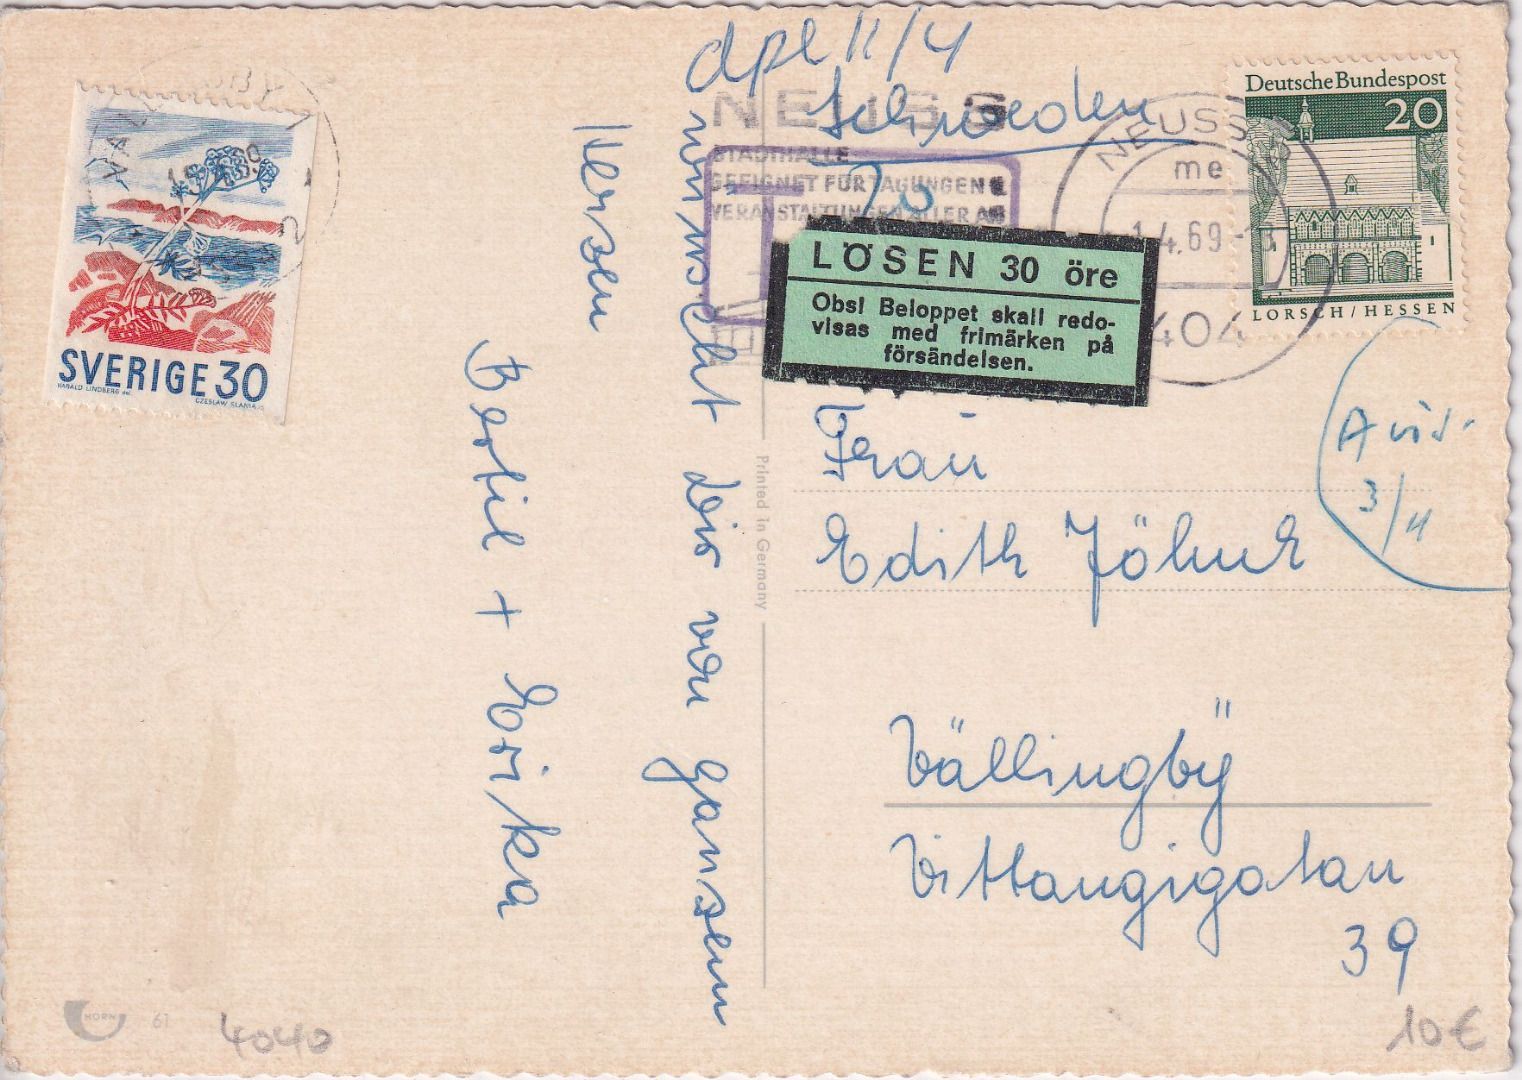 VÄLLINGBY 1
2
SVERIGE 30
HARALD LINDBERG del.
CZESLAW SLANIA sc.
wünscht dir von ganzem
Herzen
Bertil + Erika
HORN
61
4040
Printed in Germany
dpl 11/4
Schweden
NEUSS
STADTHALLE
GEEIGNET FÜR TAGUNGEN
VERANSTALTUNGEN ALLER AR
20
LÖSEN 30 öre
Obs! Beloppet skall redo-
visas med frimärken på
försändelsen.
NEUSS
me
1.4.69
404
Deutsche Bundespost
20
LORSCH/HESSEN
Avis.
3/4
Frau
Edith Jöhnk
Vällingby
Vittangigatan
39
10€